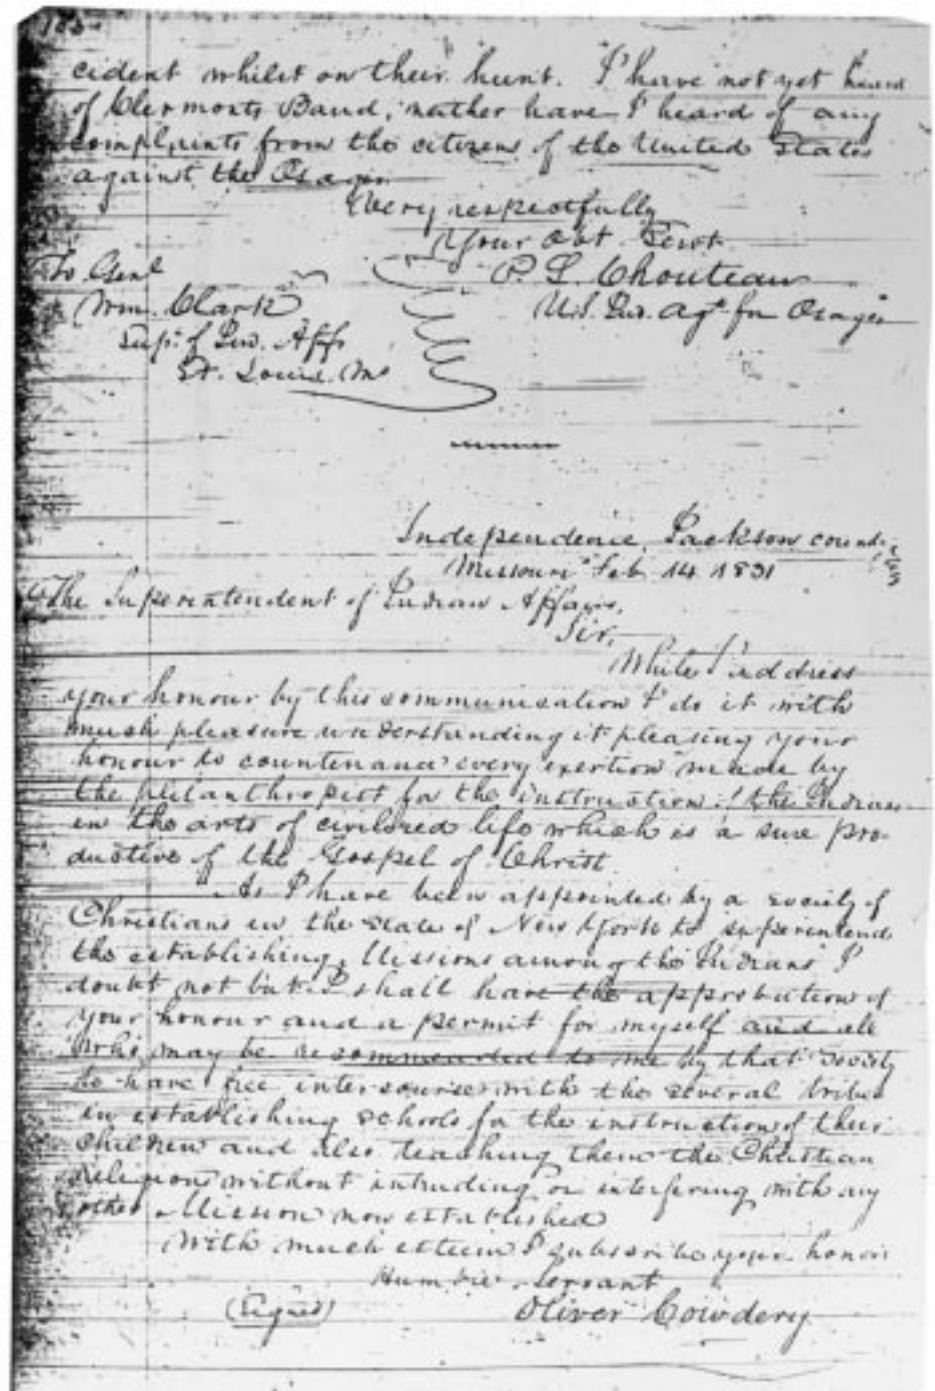 cident whilst on their hunt. I have not yet heard
of Clermonts Band, neither have I heard of any
complaints from the citizens of the United States
against the Osages
Very respectfully
Your Obt. Servt.
P. L. Chouteau
U.S. Ind. Agt. for Osages
To Genl
Wm. Clark
Supt. of Ind. Affs
St. Louis. Mo
Independence, Jackson county
Missouri Feb 14 1831
To The Superintendent of Indian Affairs,
Sir,
While I address
your honour by this communication I do it with
much pleasure understanding it pleasing your
honour to countenance every exertion made by
the philanthropist for the instruction of the Indian
in the arts of civilized life which is a sure pro-
ductive of the Gospel of Christ.
As I have been appointed by a society of
Christians in the State of New York to superintend
the establishing Missions among the Indians I
doubt not but I shall have the approbation of
your honour and a permit for myself and all
who may be recommended to me by that Society
to have free intercourse with the several tribes
in establishing schools for the instruction of their
children and also teaching them the Christian
religion without intruding or interfering with any
other Mission now established
With much esteem I subscribe your honors
Humble Servant
(Signed) Oliver Cowdery